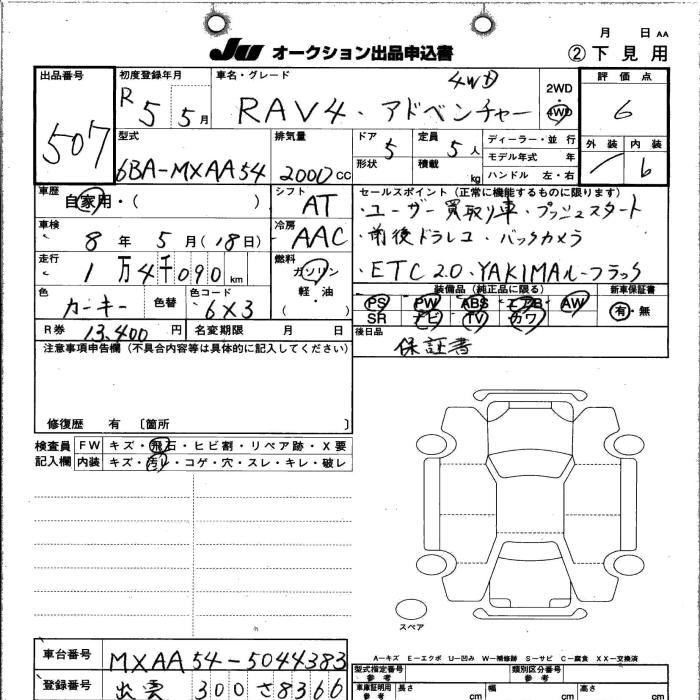 JU オークション出品申込書
月 日 AA
②下見用
出品番号
507
初度登録年月
R5 5月
車名・グレード
4WD
RAV4・アドベンチャー
2WD
4WD
評価点
6
型式
6BA-MXAA54
排気量
2000CC
ドア
5
形状
定員
5人
積載
kg
ディーラー・並行
モデル年式 年
ハンドル 左・右
外装
内装
6
車歴
自家用・( )
シフト
AT
セールスポイント(正常に機能するものに限ります)
・ユーザー買取り車・プッシュスタート
・前後ドラレコ・バックカメラ
・ETC2.0・YAKIMAルーフラック
車検
8年5月(18日)
冷房
AAC
走行
1万4千090km
燃料
ガソリン
軽・油
( )
色
カーキー
色替
色コード
6X3
装備品(純正品に限る)
PS PW ABS エアB AW
SR ナビ TV カワ
新車保証書
有・無
R券 13,400円
名変期限 月 日
後日品
保証書
注意事項申告欄(不具合内容等は具体的に記入してください)
修復歴 有 〔箇所 〕
検査員記入欄
FW キズ・飛石・ヒビ割・リペア跡・X要
内装 キズ・汚レ・コゲ・穴・スレ・キレ・破レ
スペア
A-キズ E-エクボ U-凹み W-補修跡 S-サビ C-腐食 XX-交換済
車台番号
MXAA54-5044383
登録番号
出雲 300 さ8366
型式指定番号
参考
類別区分番号
参考
車庫証明用
参考
長さ cm
幅 cm
高さ cm